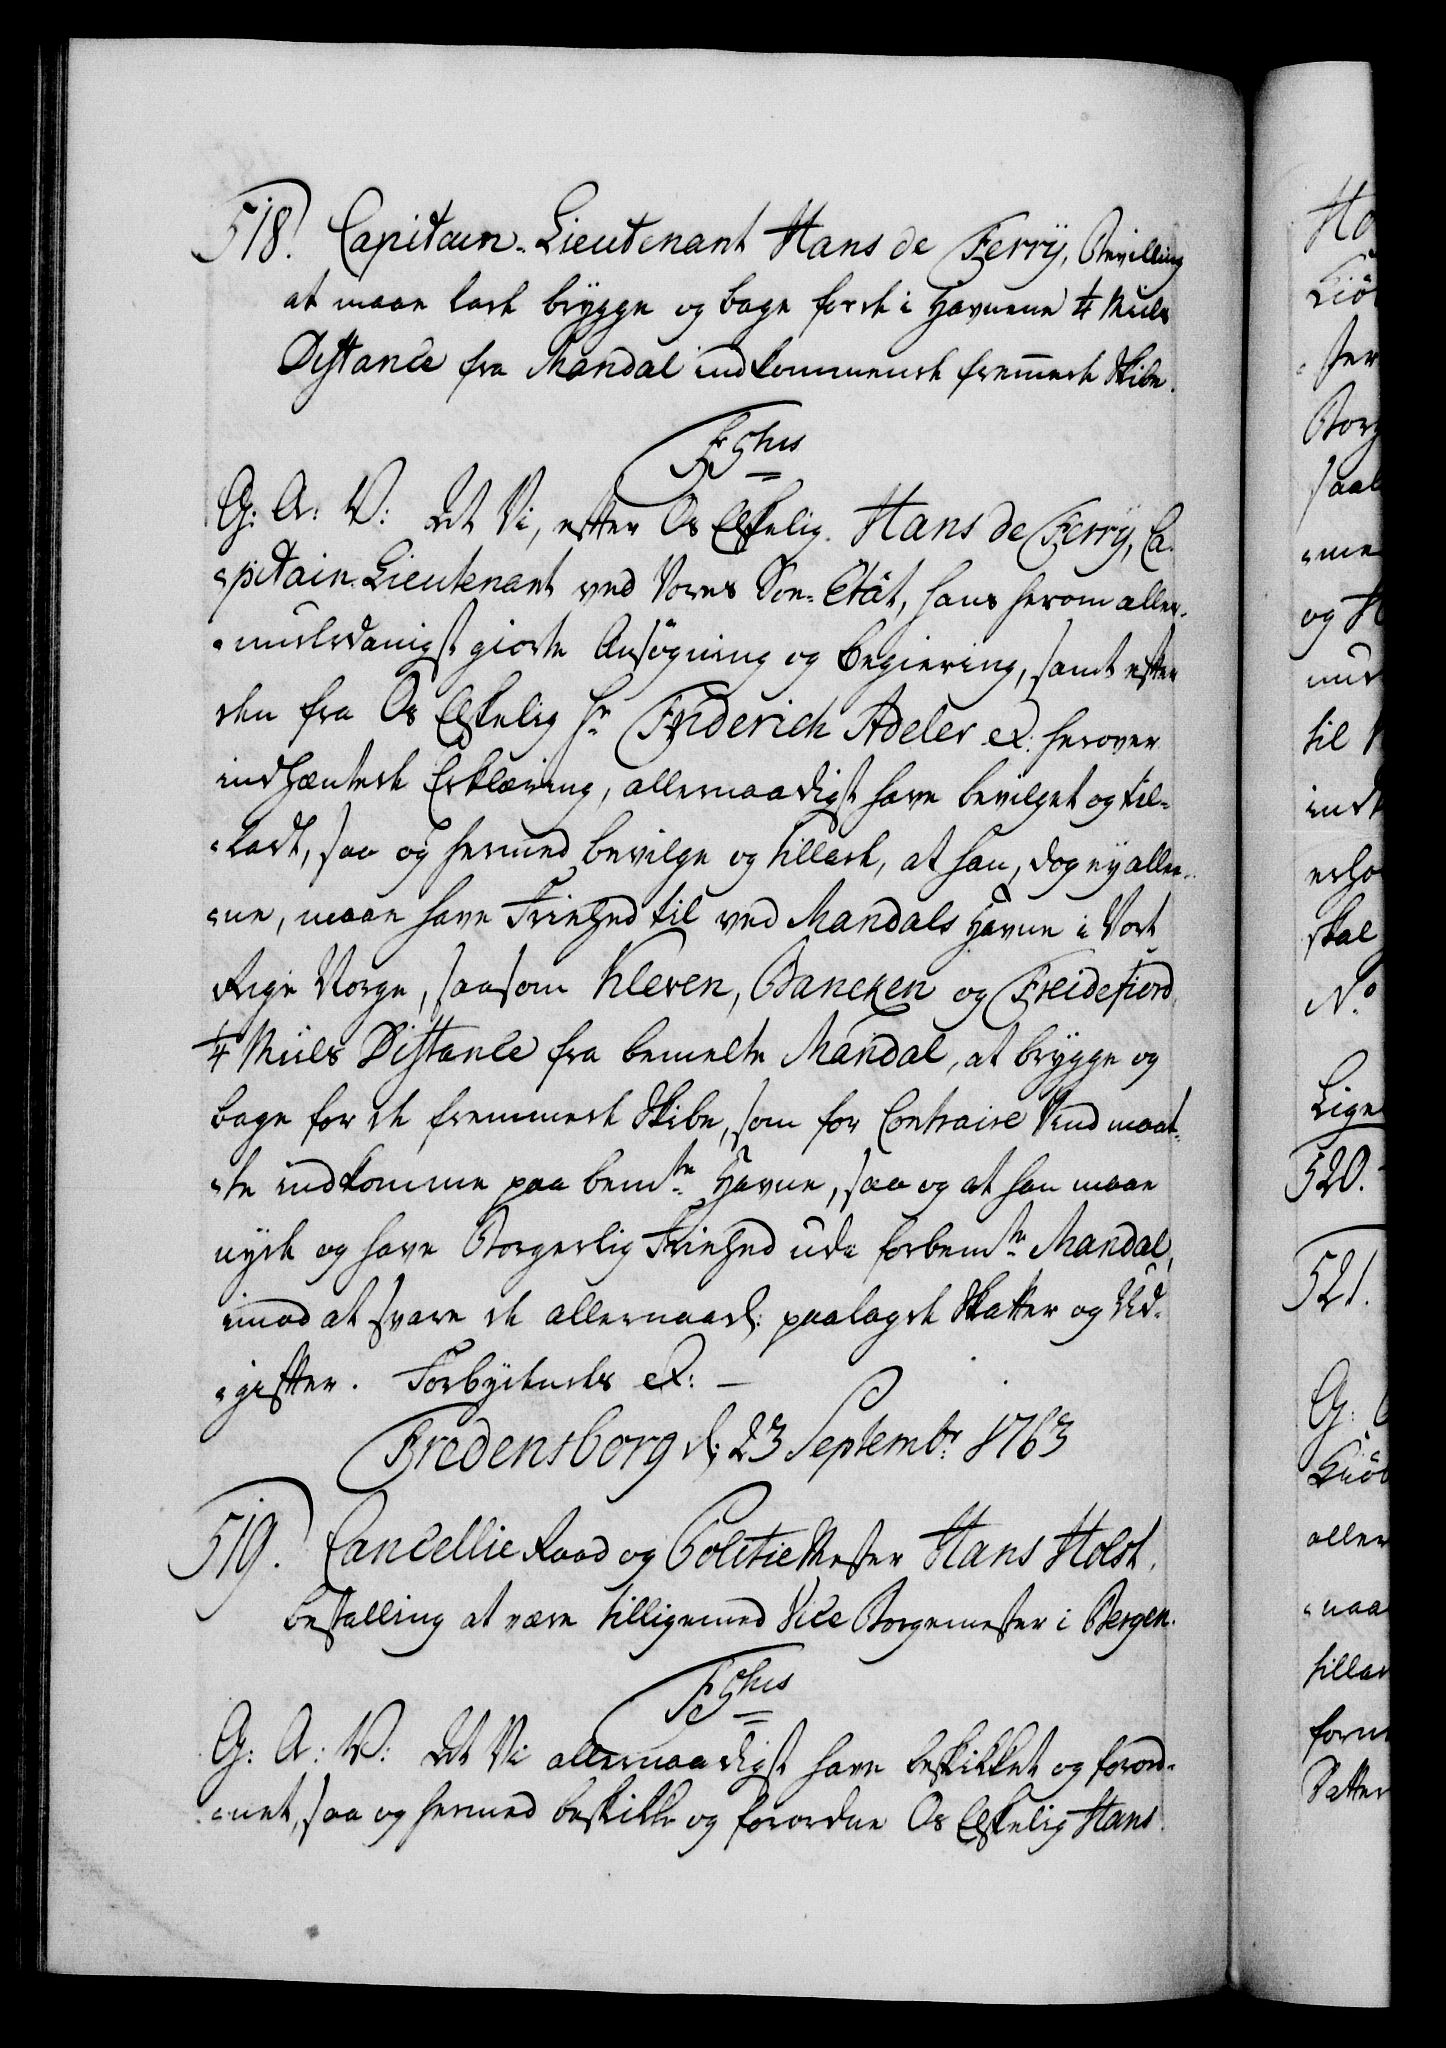 518. Capitain-Lieutenant Hans de Ferry, Bevilling
at maae lade brygge og bage for de i Havnene ¼ Miils
Distance fra Mandal indkommende fremmede Skibe.
F5tus
G: A: V: At Vi, efter Os Elskelig. Hans de Ferry, Ca-
-pitain-Lieutenant ved Vores Søe-Etât, hans herom aller-
-underdanigst giorte Ansøgning og Begiering, samt efter
den fra Os Elskelig Hr Friderich Adeler &: herover
indhæntede Erklæring, allernaadigst have bevilget og til-
-ladt, saa og hermed bevilge og tillade, at han, dog ey alle-
-ne, maae have Friehed til ved Mandals Havne i Vort
Rige Norge, saasom Kleven, Bancken og Freidefiord
¼ Miils Distance fra bemelte Mandal, at brygge og
bage for de fremmede Skibe, som for Contraire Vind maat-
-te indkomme paa bemte Havne, saa og at han maae
nyde og have Borgerlig Friehed udi forbemte Mandal,
imod at svare de allernaad: paalagde Skatter og Ud-
-gifter. Forbydendes &: —
Fredensborg d: 23 Septembr: 1763
519. Cancellie Raad og Politie Mester Hans Holst,
Bestalling at være tilligemed Vice Borgemester i Bergen.
F5tus
G: A: V: At Vi allernaadigst have beskikket og forord-
-net, saa og hermed beskikke og forordne Os Elskelig Hans
Ho
Kiö
-ster
Borg
saal
-me
og H
til
indt
erho
skal
No
Lige
520.
521.
G:
Kiöb
aller
-naa
tillad
form
Satter